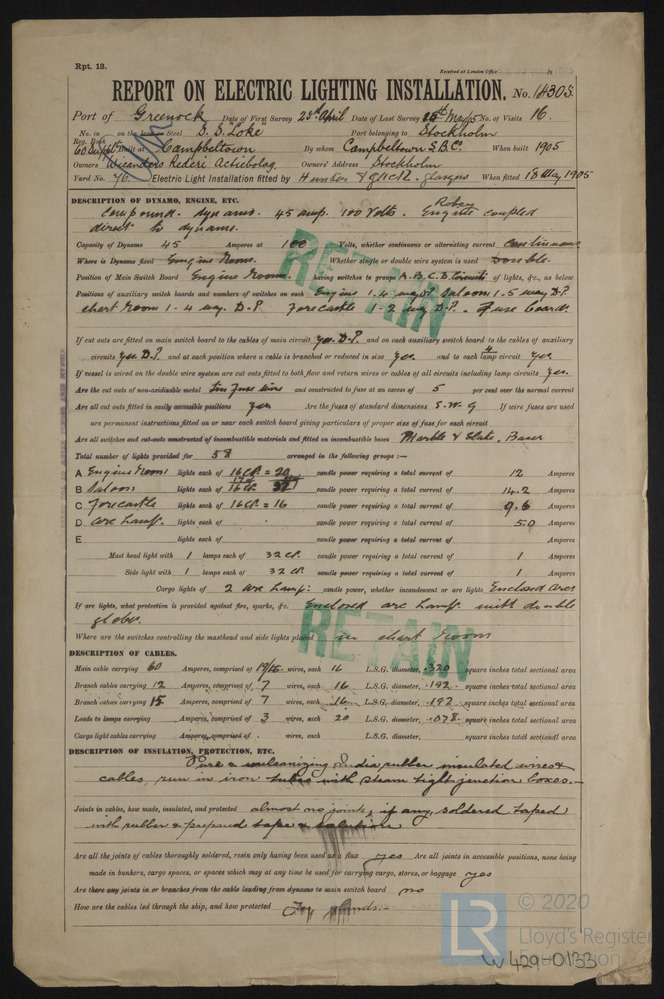 Rpt. 13.
Received at London Office
REPORT ON ELECTRIC LIGHTING INSTALLATION. No. 14305.
Port of Greenock Date of First Survey 25th April Date of Last Survey 15th May 05 No. of Visits 16.
No. in on the Iron or Steel S.S. "Loke" Port belonging to Stockholm
Reg. Book Built at Campbeltown By whom Campbeltown S.B.Co. When built 1905
Owners Wicanders Rederi Actiebolag. Owners' Address Stockholm
Yard No. 76. Electric Light Installation fitted by Glasgow When fitted 18 May 1905
DESCRIPTION OF DYNAMO, ENGINE, ETC.
Compound dynamo. 45 amp. 100 Volts. Robey Engine coupled
direct to dynamo.
Capacity of Dynamo 45 Amperes at 100 Volts, whether continuous or alternating current Continuous
Where is Dynamo fixed Engine Room. Whether single or double wire system is used Double.
Position of Main Switch Board Engine Room. having switches to groups A.B.C.D. Circuits of lights, &c., as below
Positions of auxiliary switch boards and numbers of switches on each Engine 1. 4 way D.P. Saloon 1-5 way D.P.
chart room 1- 4 way. D-P. Forecastle 1-2 way D-P. - Fuse boards.
If cut outs are fitted on main switch board to the cables of main circuit Yes. D-P. and on each auxiliary switch board to the cables of auxiliary
circuits Yes. D.P. and at each position where a cable is branched or reduced in size Yes. and to each lamp circuit Yes
If vessel is wired on the double wire system are cut outs fitted to both flow and return wires or cables of all circuits including lamp circuits Yes.
Are the cut outs of non-oxidizable metal tin fuse wire and constructed to fuse at an excess of 5 per cent over the normal current
Are all cut outs fitted in easily accessible positions Yes Are the fuses of standard dimensions S.W.G If wire fuses are used
are permanent instructions fitted on or near each switch board giving particulars of proper size of fuse for each circuit
Are all switches and cut-outs constructed of incombustible materials and fitted on incombustible bases Marble & Slate. Bases
Total number of lights provided for 58 arranged in the following groups :—
A Engine Room lights each of 16 CP. = 20 candle power requiring a total current of 12 Amperes
B Saloon lights each of 16 CP. candle power requiring a total current of 14.2 Amperes
C Forecastle lights each of 16 CP. = 16 candle power requiring a total current of 9.6 Amperes
D Arc Lamp. lights each of candle power requiring a total current of 5.0 Amperes
E lights each of candle power requiring a total current of Amperes
Mast head light with 1 lamps each of 32 CP. candle power requiring a total current of 1 Amperes
Side light with 1 lamps each of 32 CP. candle power requiring a total current of 1 Amperes
Cargo lights of 2 Arc Lamp: candle power, whether incandescent or arc lights Enclosed Arcs
If arc lights, what protection is provided against fire, sparks, &c. Enclosed arc Lamp. with double
globes.
Where are the switches controlling the masthead and side lights placed in chart room
RETAIN
RETAIN
DESCRIPTION OF CABLES.
Main cable carrying 60 Amperes, comprised of 19/16 wires, each 16 L.S.G. diameter, .320 square inches total sectional area
Branch cables carrying 12 Amperes, comprised of 7 wires, each 16 L.S.G. diameter, .192 square inches total sectional area
Branch cables carrying 15 Amperes, comprised of 7 wires, each 16 L.S.G. diameter, .192 square inches total sectional area
Leads to lamps carrying Amperes, comprised of 3 wires, each 20 L.S.G. diameter, .078 square inches total sectional area
Cargo light cables carrying Amperes, comprised of wires, each L.S.G. diameter, square inches total sectional area
DESCRIPTION OF INSULATION, PROTECTION, ETC.
Pure & vulcanizing India rubber insulated wires &
cables, run in iron tubes with steam tight junction boxes.-
Joints in cables, how made, insulated, and protected almost no joints, if any, soldered taped
with rubber & prepared tape & solution
Are all the joints of cables thoroughly soldered, resin only having been used as a flux yes Are all joints in accessible positions, none being
made in bunkers, cargo spaces, or spaces which may at any time be used for carrying cargo, stores, or baggage yes
Are there any joints in or branches from the cable leading from dynamo to main switch board no
How are the cables led through the ship, and how protected
LR
© 2020
Lloyd's Register
Foundation
W429-0133